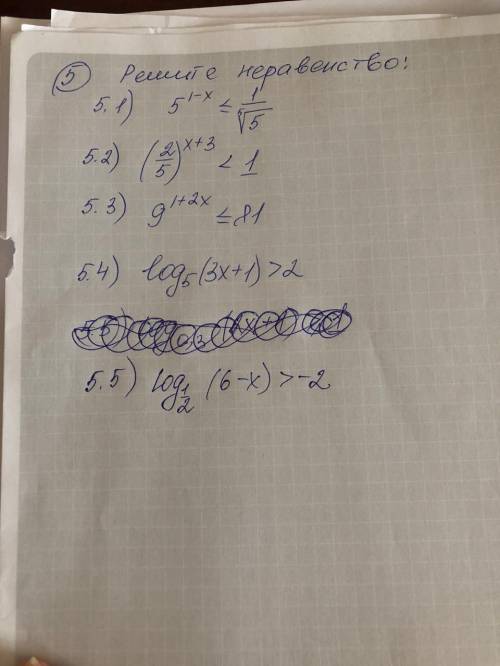 ⑤ Решите неравенство:
5.1) 5^{1-x} ≤ 1/√5
5.2) (2/5)^{x+3} < 1
5.3) 9^{1+2x} ≤ 81
5.4) log₅(3x+1) > 2
5.5) log_{1/2} (6-x) > -2